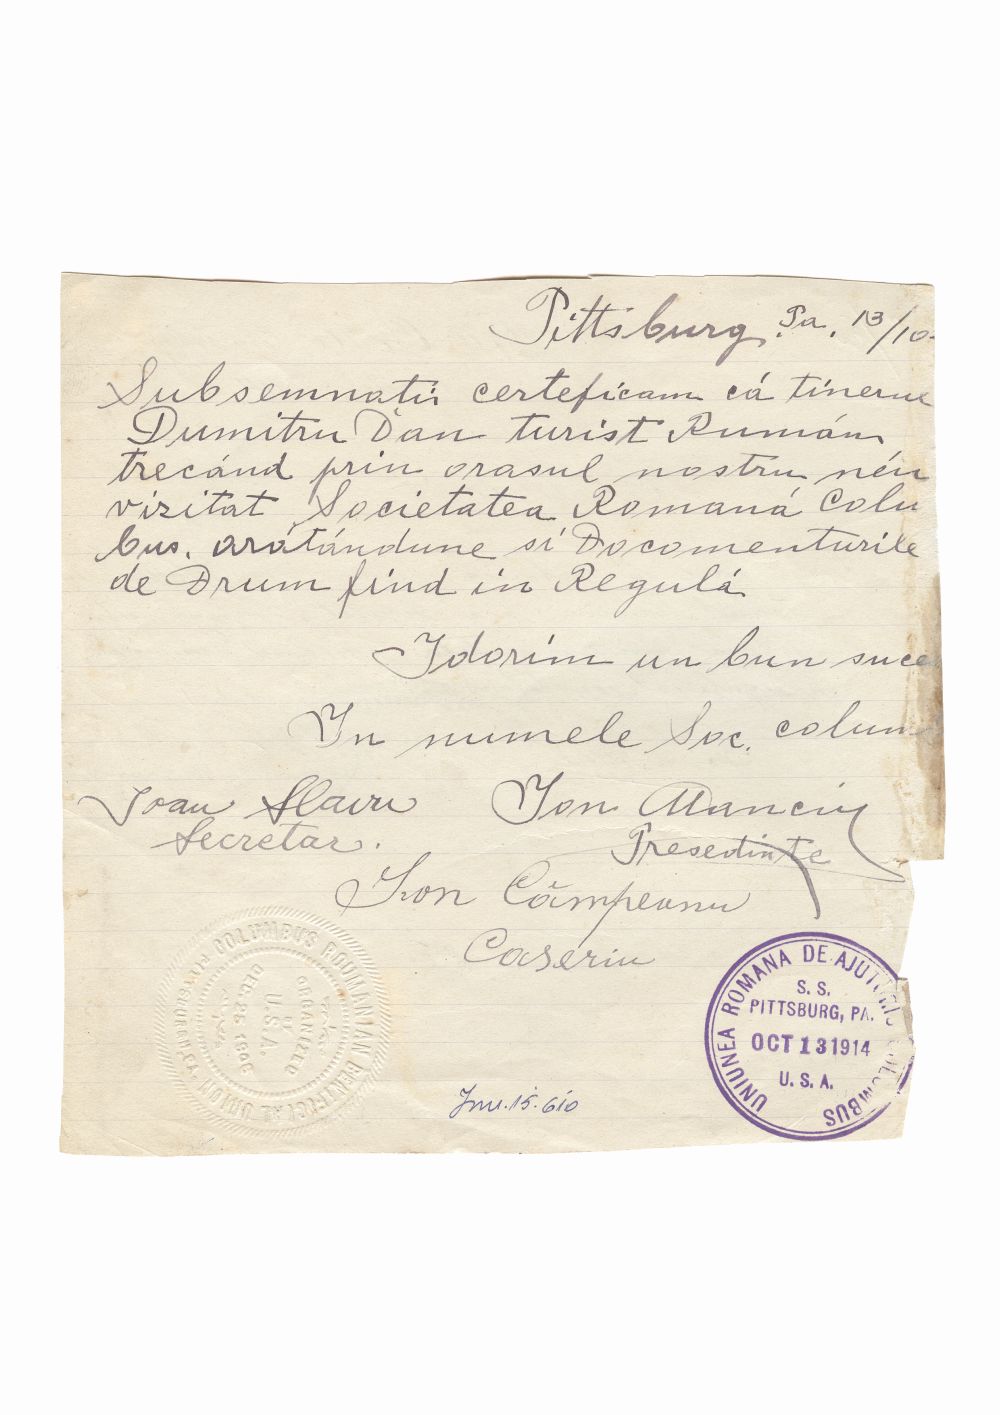 Pittsburg, Pa. 13/10.
Subsemnatii certeficam cá tinerue
Dumitru Dan turist Rumán
trecánd prin orasul nostru néu
vizitat Societatea Romaná Colu
bus. arátándune si Documenturile
de Drum fiind in Regulá
Idorim un bun suce
In numele Soc. colum
Ioan Slavu
Secretar.
Ion Manciu
Presedinte
Ion Câmpeanu
Caseriu
COLUMBUS ROUMANIAN BENEFICIAL UNION
ORGANIZED
DEC. 25 1906
U.S.A.
UNIUNEA ROMANA DE AJUT COLUMBUS
S. S.
PITTSBURG, PA.
OCT 13 1914
U. S. A.
Inv. 15.610